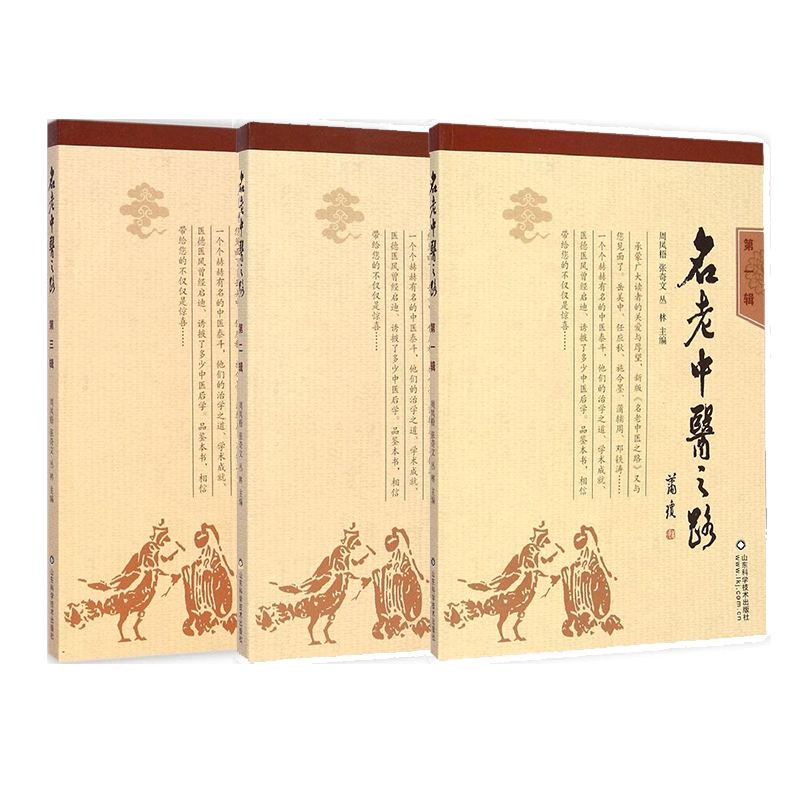 名老中醫之路
第三辑
周凤梧 张奇文 丛 林 主编
山东科学技术出版社
一个个赫赫有名的中医泰斗，他们的治学之道、学术成就、
医德医风曾经启迪、诱掖了多少中医后学。品鉴本书，相信
带给您的不仅仅是惊喜……
名老中醫之路
第二辑
周凤梧 张奇文 丛 林 主编
山东科学技术出版社
一个个赫赫有名的中医泰斗，他们的治学之道、学术成就、
医德医风曾经启迪、诱掖了多少中医后学。品鉴本书，相信
带给您的不仅仅是惊喜……
名老中醫之路
第一辑
周凤梧 张奇文 丛 林 主编
山东科学技术出版社
第一辑
名老中醫之路
周凤梧 张奇文 丛 林 主编
承蒙广大读者的关爱与厚望，新版《名老中医之路》又与
您见面了。岳美中、任应秋、施今墨、蒲辅周、邓铁涛……
一个个赫赫有名的中医泰斗，他们的治学之道、学术成就、
医德医风曾经启迪、诱掖了多少中医后学。品鉴本书，相信
带给您的不仅仅是惊喜……
山东科学技术出版社
www.lkj.com.cn